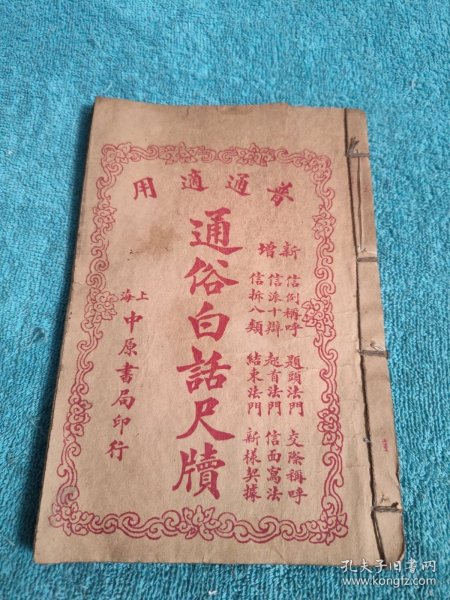 普通適用
新增
信例稱呼 題頭法門 交際稱呼
信派十辯 起首法門 信面寫法
信拆八類 結束法門 新樣契據
通俗白話尺牘
上海中原書局印行
孔夫子旧书网
www.kongfz.com